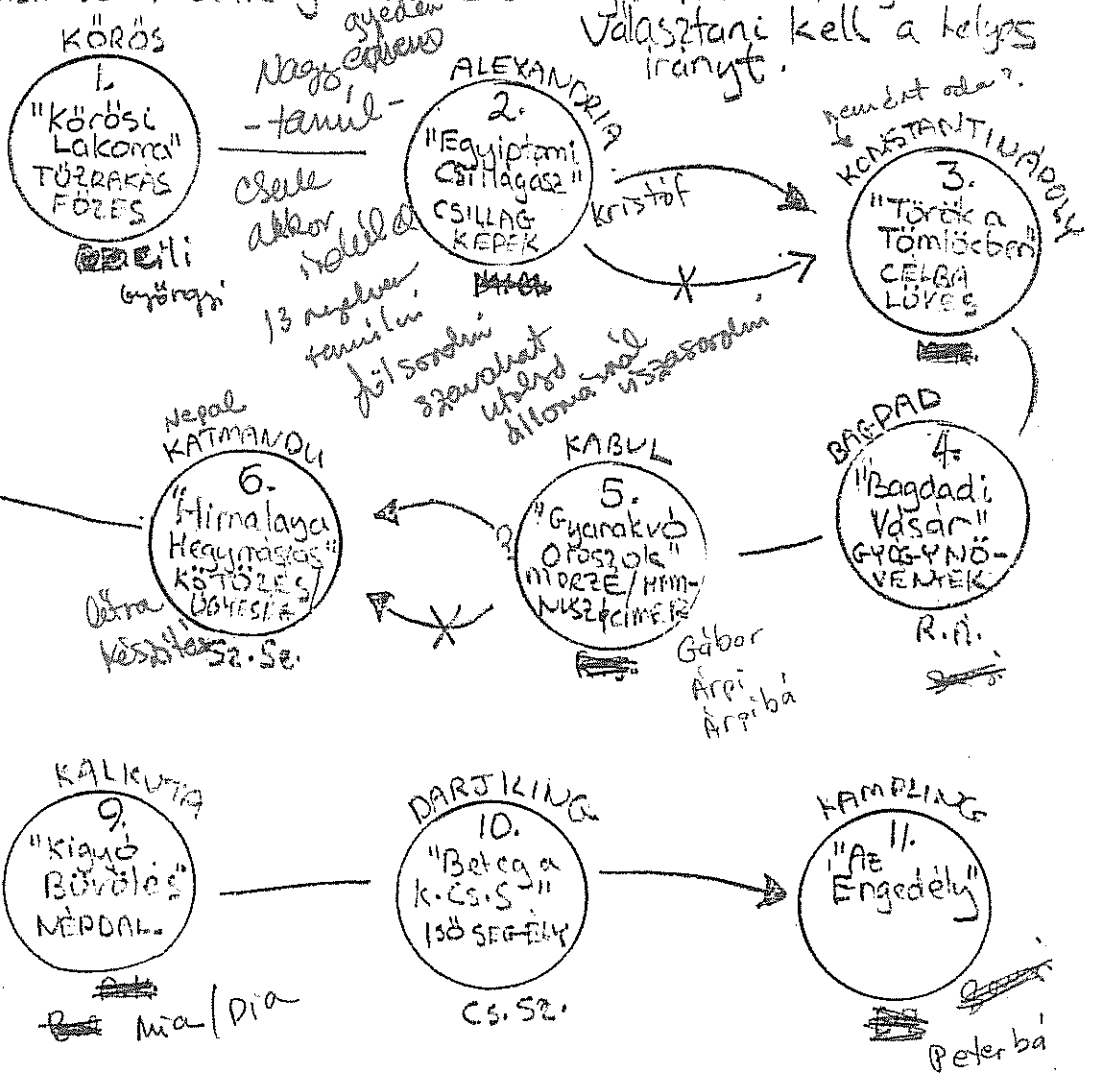 Választani kell a helyes
irányt.
KŐRÖS
1.
"Kőrösi
Lakoma"
TŰZRAKÁS
FŐZÉS
Cili
Györgyi
gyeden
Nagy
-tanúl-
akkor
indúl el
13 nyelven
tanúlni
föl sorolni
szavakat
utolsó
állomásnál
visszasorolni
ALEXANDRIA
2.
"Egyiptomi
Csillagász"
CSILLAG
KÉPEK
Kristóf
nem ért oda?
KONSTANTINÁPOLY
3.
"Török a
Tömlöcben"
CÉLBA
LÖVÉS
BAGDAD
4.
"Bagdadi
Vásár"
GYÓGYNÖ-
VÉNYEK
R.A.
KABUL
5.
"Gyanakvó
Oroszok"
MORZE/HIM-
NUSZ/CÍMER
Gábor
Árpi
Árpi bá
Nepal
KATMANDU
6.
"Himalaya
Hegymászás"
KÖTÖZÉS/
ÜGYESSÉG
létra
készítés
Sz.Sz.
KALKUTA
9.
"Kigyó
Bűvölés"
NÉPDAL.
Mia/Dia
DARJILING
10.
"Beteg a
K.Cs.S"
ISŐSEGÉLY
Cs.Sz.
KAMPLING
11.
"Az
Engedély"
Peter bá